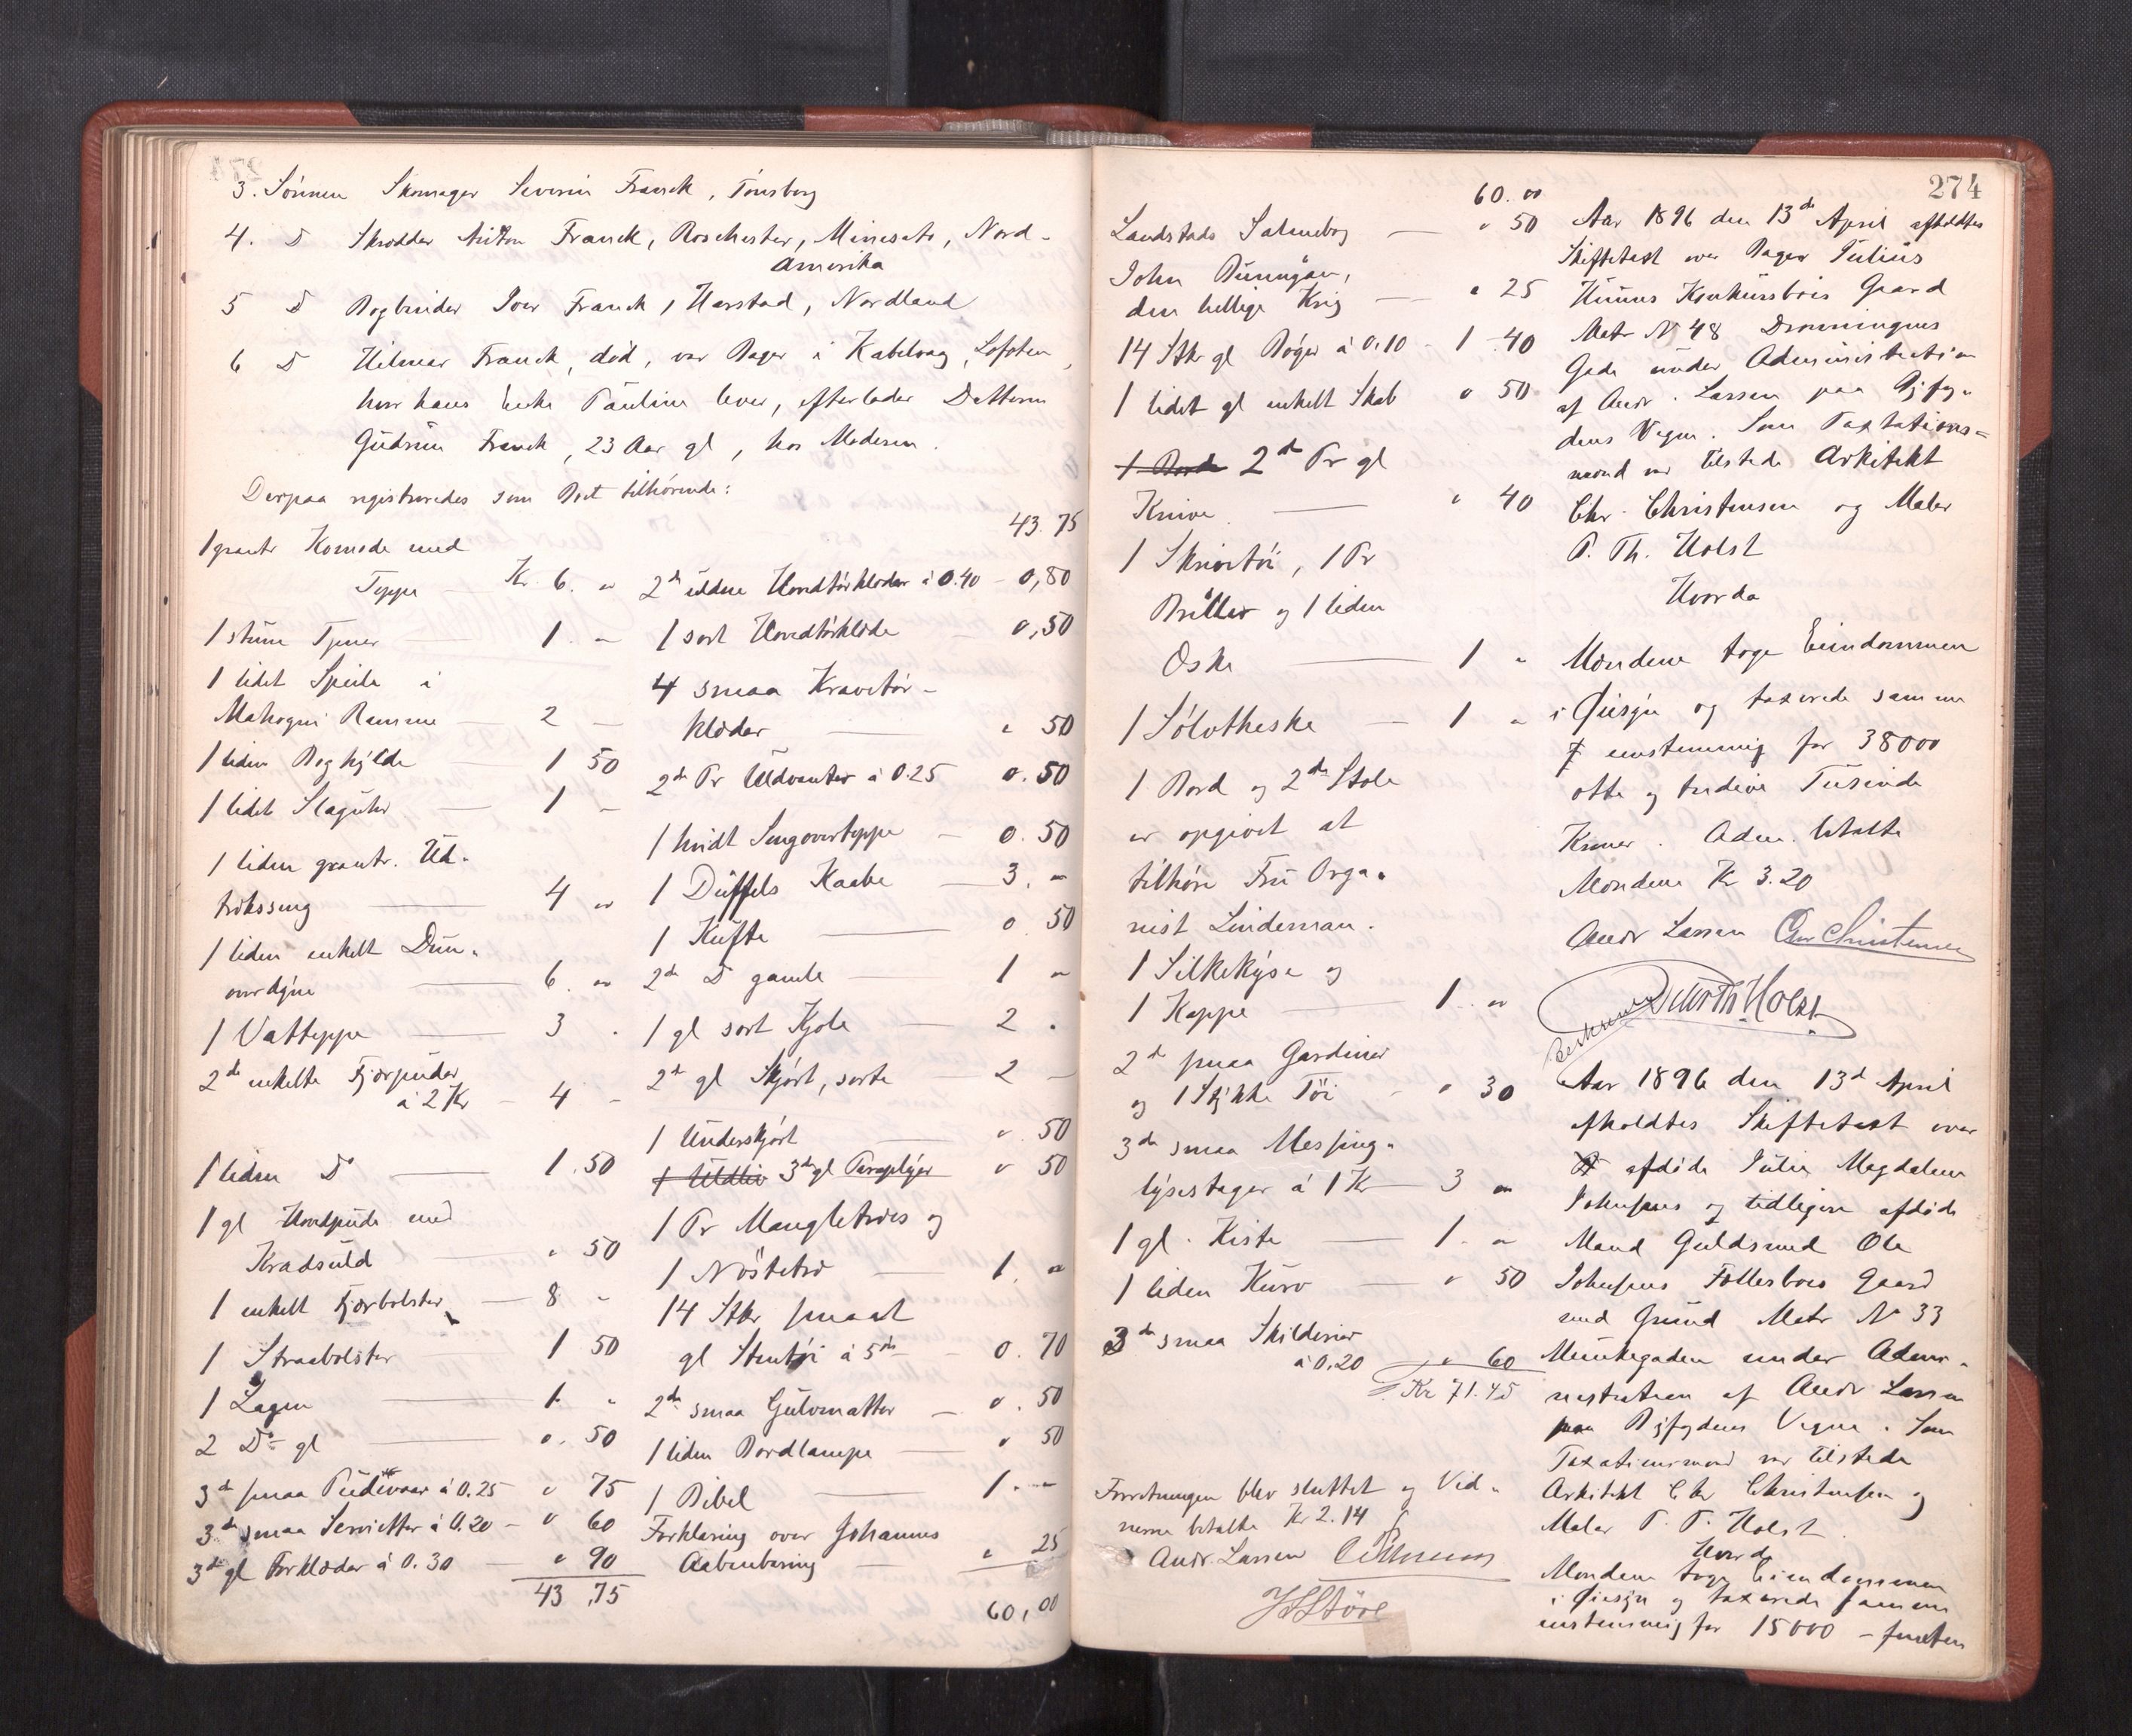 3. Sønnen Skomager Severin Franck, Tønsberg
4. D Skrædder Anton Franck, Rochester, Minesota, Nord-
Amerika
5 D Bogbinder Iver Franck, Harstad, Nordland
6 D Hilmar Franck, død, var Bager i Kabelvaag, Lofoten,
hvor hans Enke Pauline lever, efterlader Datteren
Gudrun Franck, 23 Aar gl, hos Moderen.
Derpaa registreredes som Boet tilhørende:
1 grantr Komode med
Teppe — Kr. 6. "
1 stum Tjener — 1. "
1 lidet Speile i
Mahogni Ramme — 2 —
1 liden Boghylde 1 50
1 lidet Slaguhr — 1 —
1 liden grantr. Ud-
træksseng — 4 "
1 liden enkelt Dun-
overdyne — 6. "
1 Vatteppe — 3 "
2de enkelte Fjærpuder
à 2 Kr — 4 —
1 liden Do — 1.50
1 gl Hovedpude med
Kradsuld " 50
1 enkelt Fjærbolster — 8 "
1 Straabolster 1 50
1 Lagen — 1. "
2 Do gl — 0. 50
3de smaa Pudevaar à 0.25 " 75
3de smaa Servietter à 0.20 — " 60
3de gl Forklæder à 0.30 — " 90
43,75
43.75
2de uldne Hovedtørklæder à 0.40 — 0,80
1 sort Hovedtørklæde 0,50
4 smaa Kravetør-
klæder — " 50
2de Pr Uldvanter à 0.25 0.50
1 hvidt Sengeoverteppe — 0.50
1 Duffels Kaabe — 3. "
1 Kufte — 0 50
2de D gamle — 1 "
1 gl sort Kjole — 2 "
2de gl Skjørt, sorte — 2 —
1 Underskjørt — " 50
1 Uldliv 3de gl Paraplyer " 50
1 Pr Mangletræes og
1 Nøstetræ — 1. "
14 Stkr smaat
gl Stentøi à 5 — 0.70
2de smaa Gulvmatter — 0.50
1 liden Bordlampe " 50
1 Bibel — 1. "
Forklaring over Johannes
Aabenbaring — " 25
60,00
274
60.00
Landstads Salmebog — " 50
John Bunnyan,
den hellige Krig — " 25
14 Stkr gl Bøger à 0.10 — 1.40
1 lidet gl enkelt Skab " 50
1 Bord 2de Pr gl
Knive — " 40
1 Skrivetøi, 1 Pr
Briller og 1 liden
Æske — 1 "
1 Sølvtheske — 1 "
1 Bord og 2de Stole
er opgivet at
tilhøre Fru Orga-
nist Lindeman.
1 Silkekyse og
1 Kappe — 1. "
2de smaa Gardiner
og 1 Stykke Tøi — " 30
3de smaa Messing-
lysestager á 1 Kr — 3 "
1 gl. Kiste — 1. "
1 liden Kurv — " 50
3de smaa Skilderier
à 0.20 " 60
Kr 71.45
Forretningen blev sluttet og Vid-
nerne betalte Kr 2.14
Andr. Larsen
Aar 1896 den 13de April afholdtes
Skiftetaxt over Bager Julius
Huuns Konkursbois Gaard
Matr No 48 Dronningens
Gade under Administration
af Andr. Larsen paa Byfog-
dens Vegne. Som Taxtations-
mænd var tilstede Arkitekt
Chr. Christensen og Maler
P. Th. Holst
Hvorda
Mændene toge Eiendommen
i Øiesyn og taxerede samme
enstemmig for 38000
otte og tredive Tusinde
Kroner. Adm. betalte
Mændene Kr 3.20
Andr Larsen Chr Christensen
Holst
Aar 1896 den 13de April
afholdtes Skiftetaxt over
afdøde Julie Magdalene
Johnsens og tidligere afdøde
Mand Guldsmed Ole
Johnsens Fællesboes Gaard
med Grund Matr No 33
Munkegaden under Admi-
nistration af Andr Larsen
paa Byfogdens Vegne. Som
Taxationsmænd var tilstede
Arkitekt Chr Christensen og
Maler P. T. Holst.
Hvorda
Mændene toge Eiendommen
i Øiesyn og taxerede samme
enstemmig for 15000 — femten